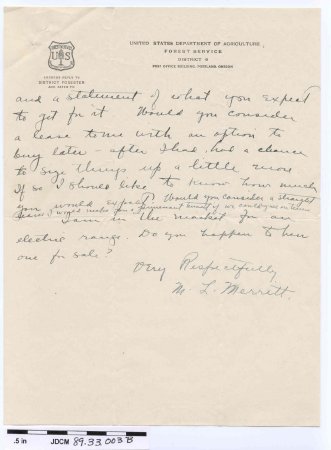 UNITED STATES DEPARTMENT OF AGRICULTURE
FOREST SERVICE
DISTRICT 6
POST OFFICE BUILDING, PORTLAND, OREGON
U S
ADDRESS REPLY TO
DISTRICT FORESTER
AND REFER TO
and a statement of what you expect
to get for it Would you consider
a lease to me with an option to
buy later - after I had had a chance
to size things up a little more
If so I should like to know how much
you would expect? Would you consider a straight
lease? I would make you a permanent tenant if we could agree on terms
I am in the market for an
electric range Do you happen to have
one for sale?
Very Respectfully
M. L. Merritt.
.5 in
JDCM 89.33.003B